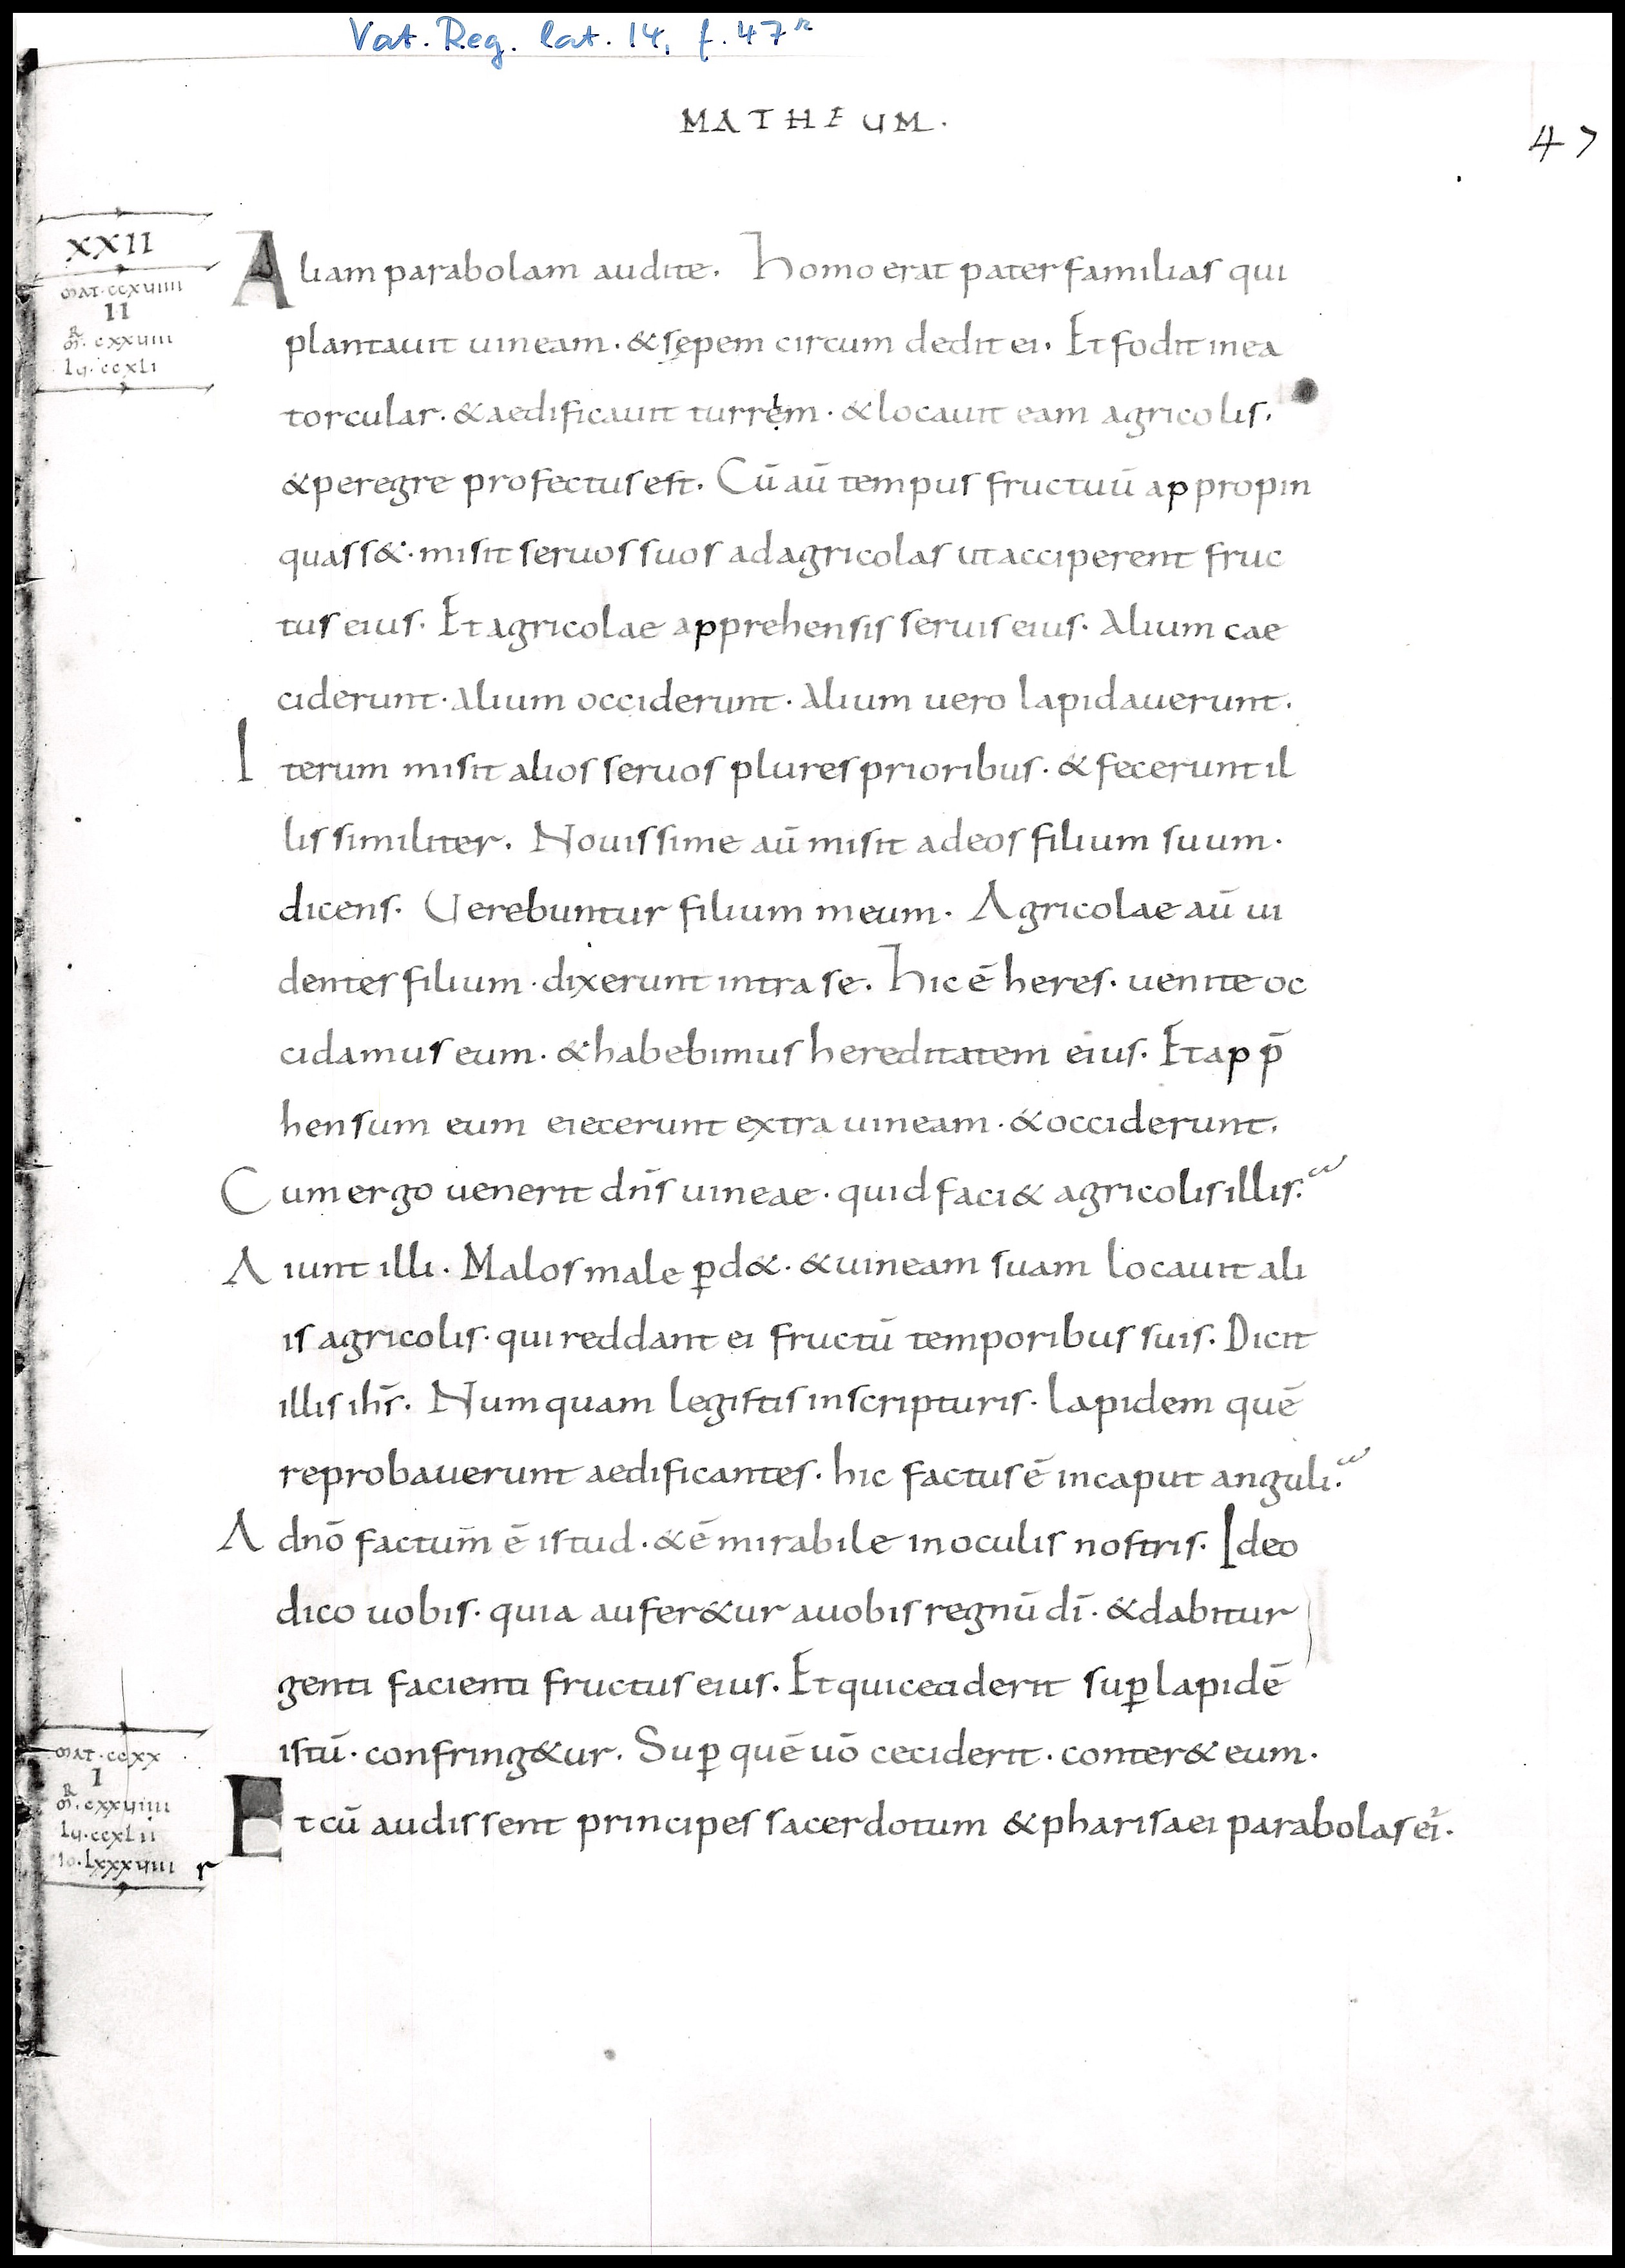 Vat. Reg. lat. 14, f. 47r
MATHEUM.
47
XXII
MAT·CCXVIIII
II
MR·CXXVIII
LU·CCXLI
Aliam parabolam audite. Homo erat paterfamilias qui
plantauit uineam· & sępem circum dedit ei· Et fodit in ea
torcular· & aedificauit turrem· & locauit eam agricolis.
& peregre profectus est. Cū aū tempus fructuū appropin
quass&· misit seruos suos ad agricolas ut acciperent fruc
tus eius· Et agricolae apprehensis seruis eius· Alium cae
ciderunt· Alium occiderunt· Alium uero lapidauerunt.
Iterum misit alios seruos plures prioribus· & fecerunt il
lis similiter. Nouissime aū misit ad eos filium suum·
dicens· Uerebuntur filium meum· Agricolae aū ui
dentes filium· dixerunt intra se. Hic ē heres· uenite oc
cidamus eum· & habebimus hereditatem eius· Et app̄
hensum eum eiecerunt extra uineam· & occiderunt.
Cum ergo uenerit dn̄s uineae· quid faci& agricolis illis·
Aiunt illi· Malos male ꝑd&· & uineam suam locauit ali
is agricolis· qui reddant ei fructū temporibus suis· Dicit
illis ih̄s· Numquam legistis in scripturis· Lapidem quē
reprobauerunt aedificantes· hic factus ē in caput anguli·
A dn̄o factum̄ ē istud· & ē mirabile in oculis nostris· Ideo
dico uobis· quia aufer&ur a uobis regnū dī· & dabitur
genti facienti fructus eius· Et qui ceciderit suꝑ lapidē
istū· confring&ur. Suꝑ quē uō ceciderit· conter& eum·
MAT·CCXX
I
MR·CXXVIIII
LU·CCXLII
IO·LXXXVIII
r
Et cū audissent principes sacerdotum & pharisaei parabolas ei·